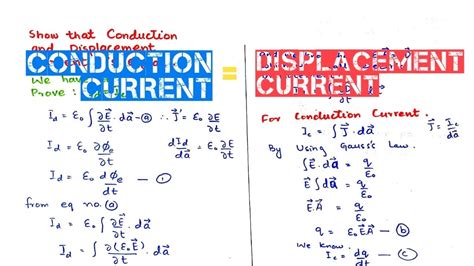 Show that Conduction
and Displacement
CONDUCTION
CURRENT
=
DISPLACEMENT
CURRENT
We have
Prove :
I_d = ε₀ ∫ ∂E⃗/∂t · da⃗ —ⓐ ∴ J⃗ = ε₀ ∂E⃗/∂t
I_d = ε₀ ∂ϕ_e/∂t dI_d/da⃗ = ε₀ ∂E⃗/∂t
I_d = ε₀ dϕ_e/dt —①
from eq no. ⓐ
I_d = ε₀ ∫ ∂E⃗/∂t · da⃗
I_d = ∫ ∂(ε₀E⃗)/∂t · da⃗
For Conduction Current.
I_c = ∫ J⃗ · da⃗ J⃗ = I_c/da⃗
By Using Gauss's Law.
∫E⃗ · da⃗ = q/ε₀
E⃗ ∫da⃗ = q/ε₀
E⃗.A⃗ = q/ε₀
q = ε₀E⃗A⃗ —ⓑ
We know.
I_c = dq/dt —ⓒ